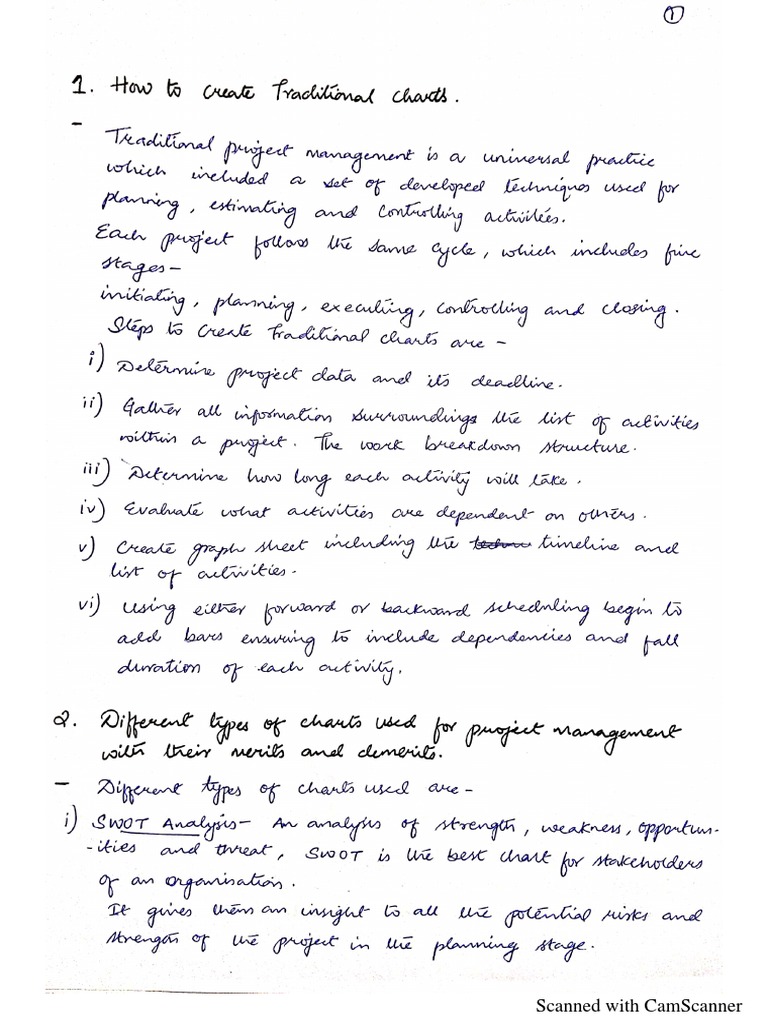 ①
1. How to create Traditional charts.
- Traditional project management is a universal practice
which included a set of developed techniques used for
planning, estimating and controlling activities.
Each project follows the same cycle, which includes five
stages-
initiating, planning, executing, controlling and closing.
Steps to create Traditional charts are -
i) Determine project data and its deadline.
ii) Gather all information surroundings the list of activities
within a project. The work breakdown structure.
iii) Determine how long each activity will take.
iv) Evaluate what activities are dependent on others.
v) Create graph sheet including the timeline and
list of activities.
vi) Using either forward or backward scheduling begin to
add bars ensuring to include dependencies and full
duration of each activity.
2. Different types of charts used for project management
with their merits and demerits.
- Different types of charts used are-
i) SWOT Analysis- An analysis of strength, weakness, opportun-
-ities and threat, SWOT is the best chart for stakeholders
of an organisation.
It gives them an insight to all the potential risks and
strength of the project in the planning stage.
Scanned with CamScanner